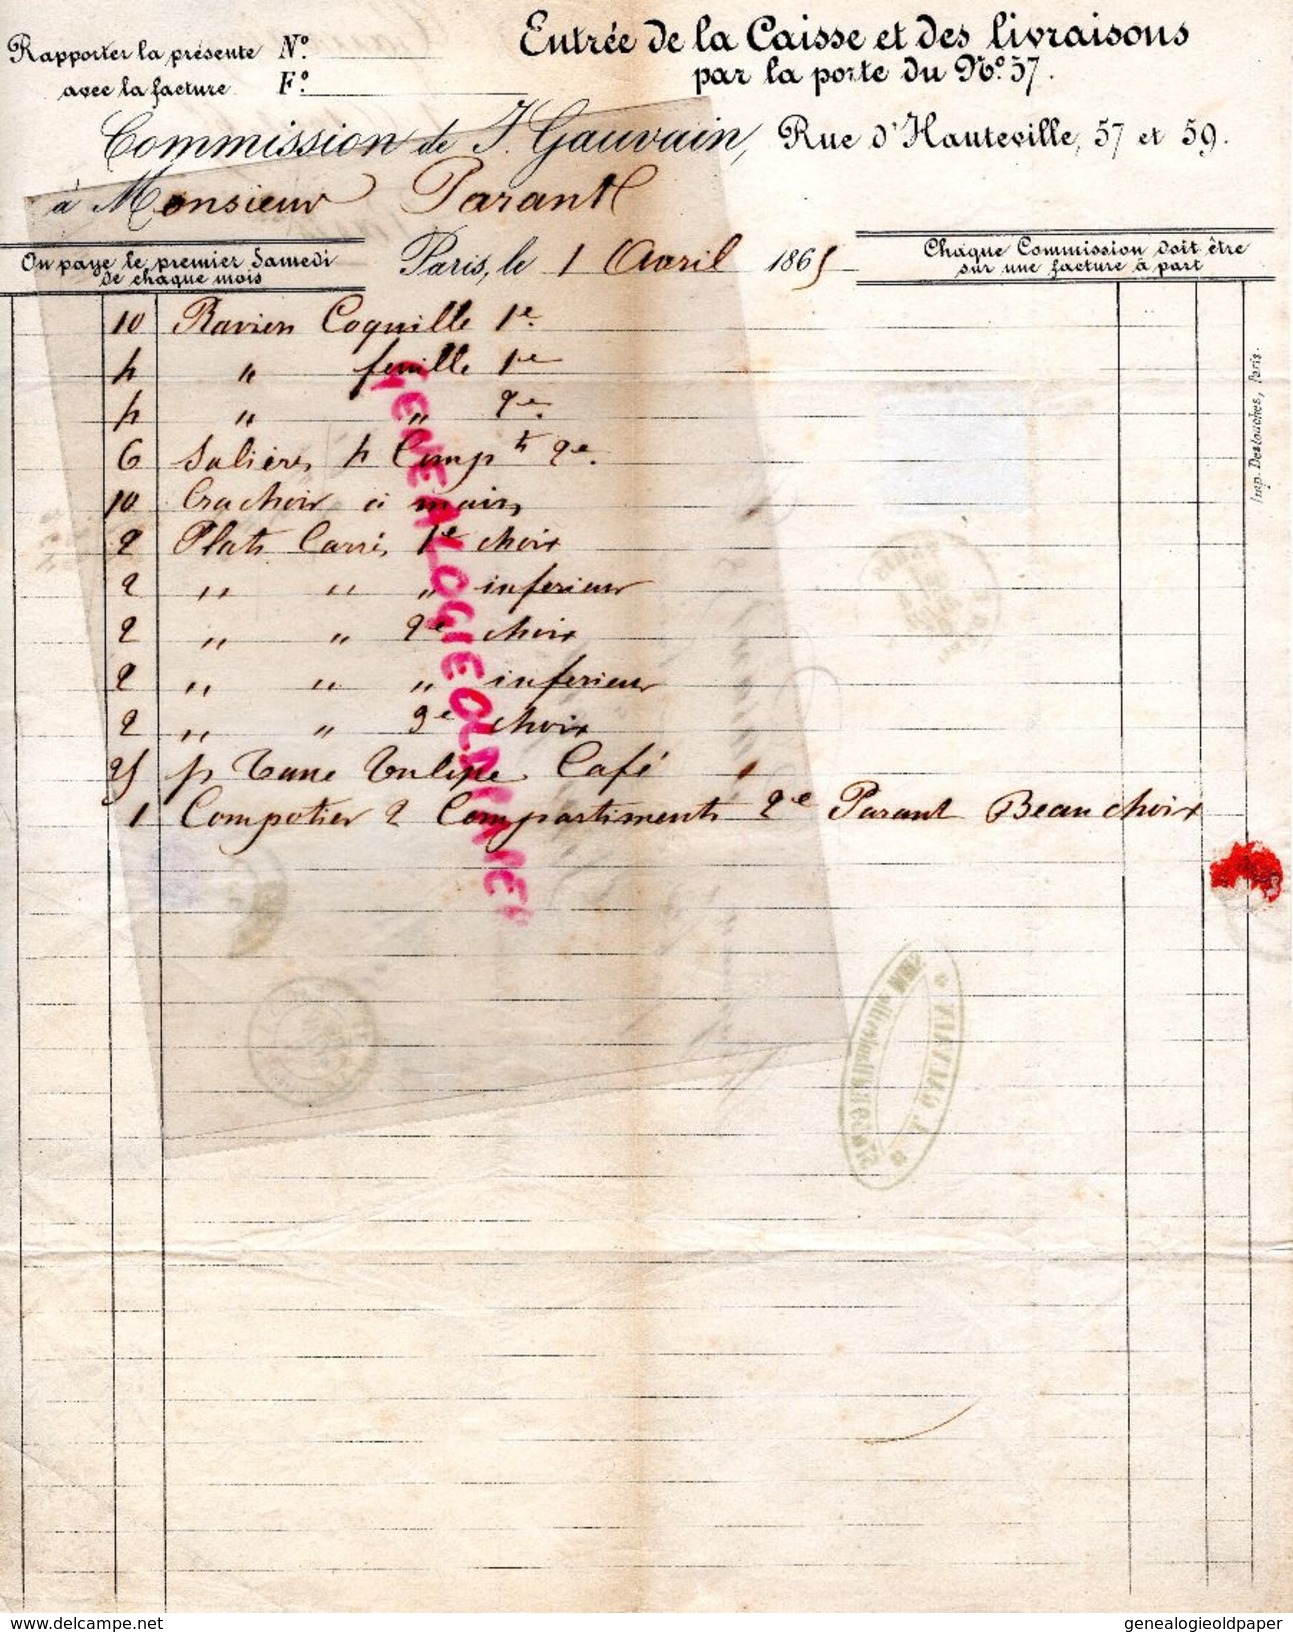 Rapporter la présente N.º
avec la facture. F.º
Entrée de la Caisse et des livraisons
par la porte du Nº 57.
Commission de J. Gauvain, Rue d'Hauteville, 57 et 59.
à Monsieur Parant
On paye le premier Samedi
de chaque mois
Paris, le 1 Avril 1865
Chaque Commission doit être
sur une facture à part
10 Raviers Coquille 1e.
4 " feuille 1e
4 " " 2e.
6 Salières 4 Compts 2e.
10 Crachoir à mains
2 Plats Carrés 1e choix
2 " " " inferieur
2 " " 2e choix
2 " " " inferieur
2 " " 3e choix
25 p Tasse Tulipe Café
1 Compotier 2 Compartiments 2e Parant Beau choix
Imp. Deslouches, Paris.
GENEALOGIEOLDPAPER
www.delcampe.net
genealogieoldpaper